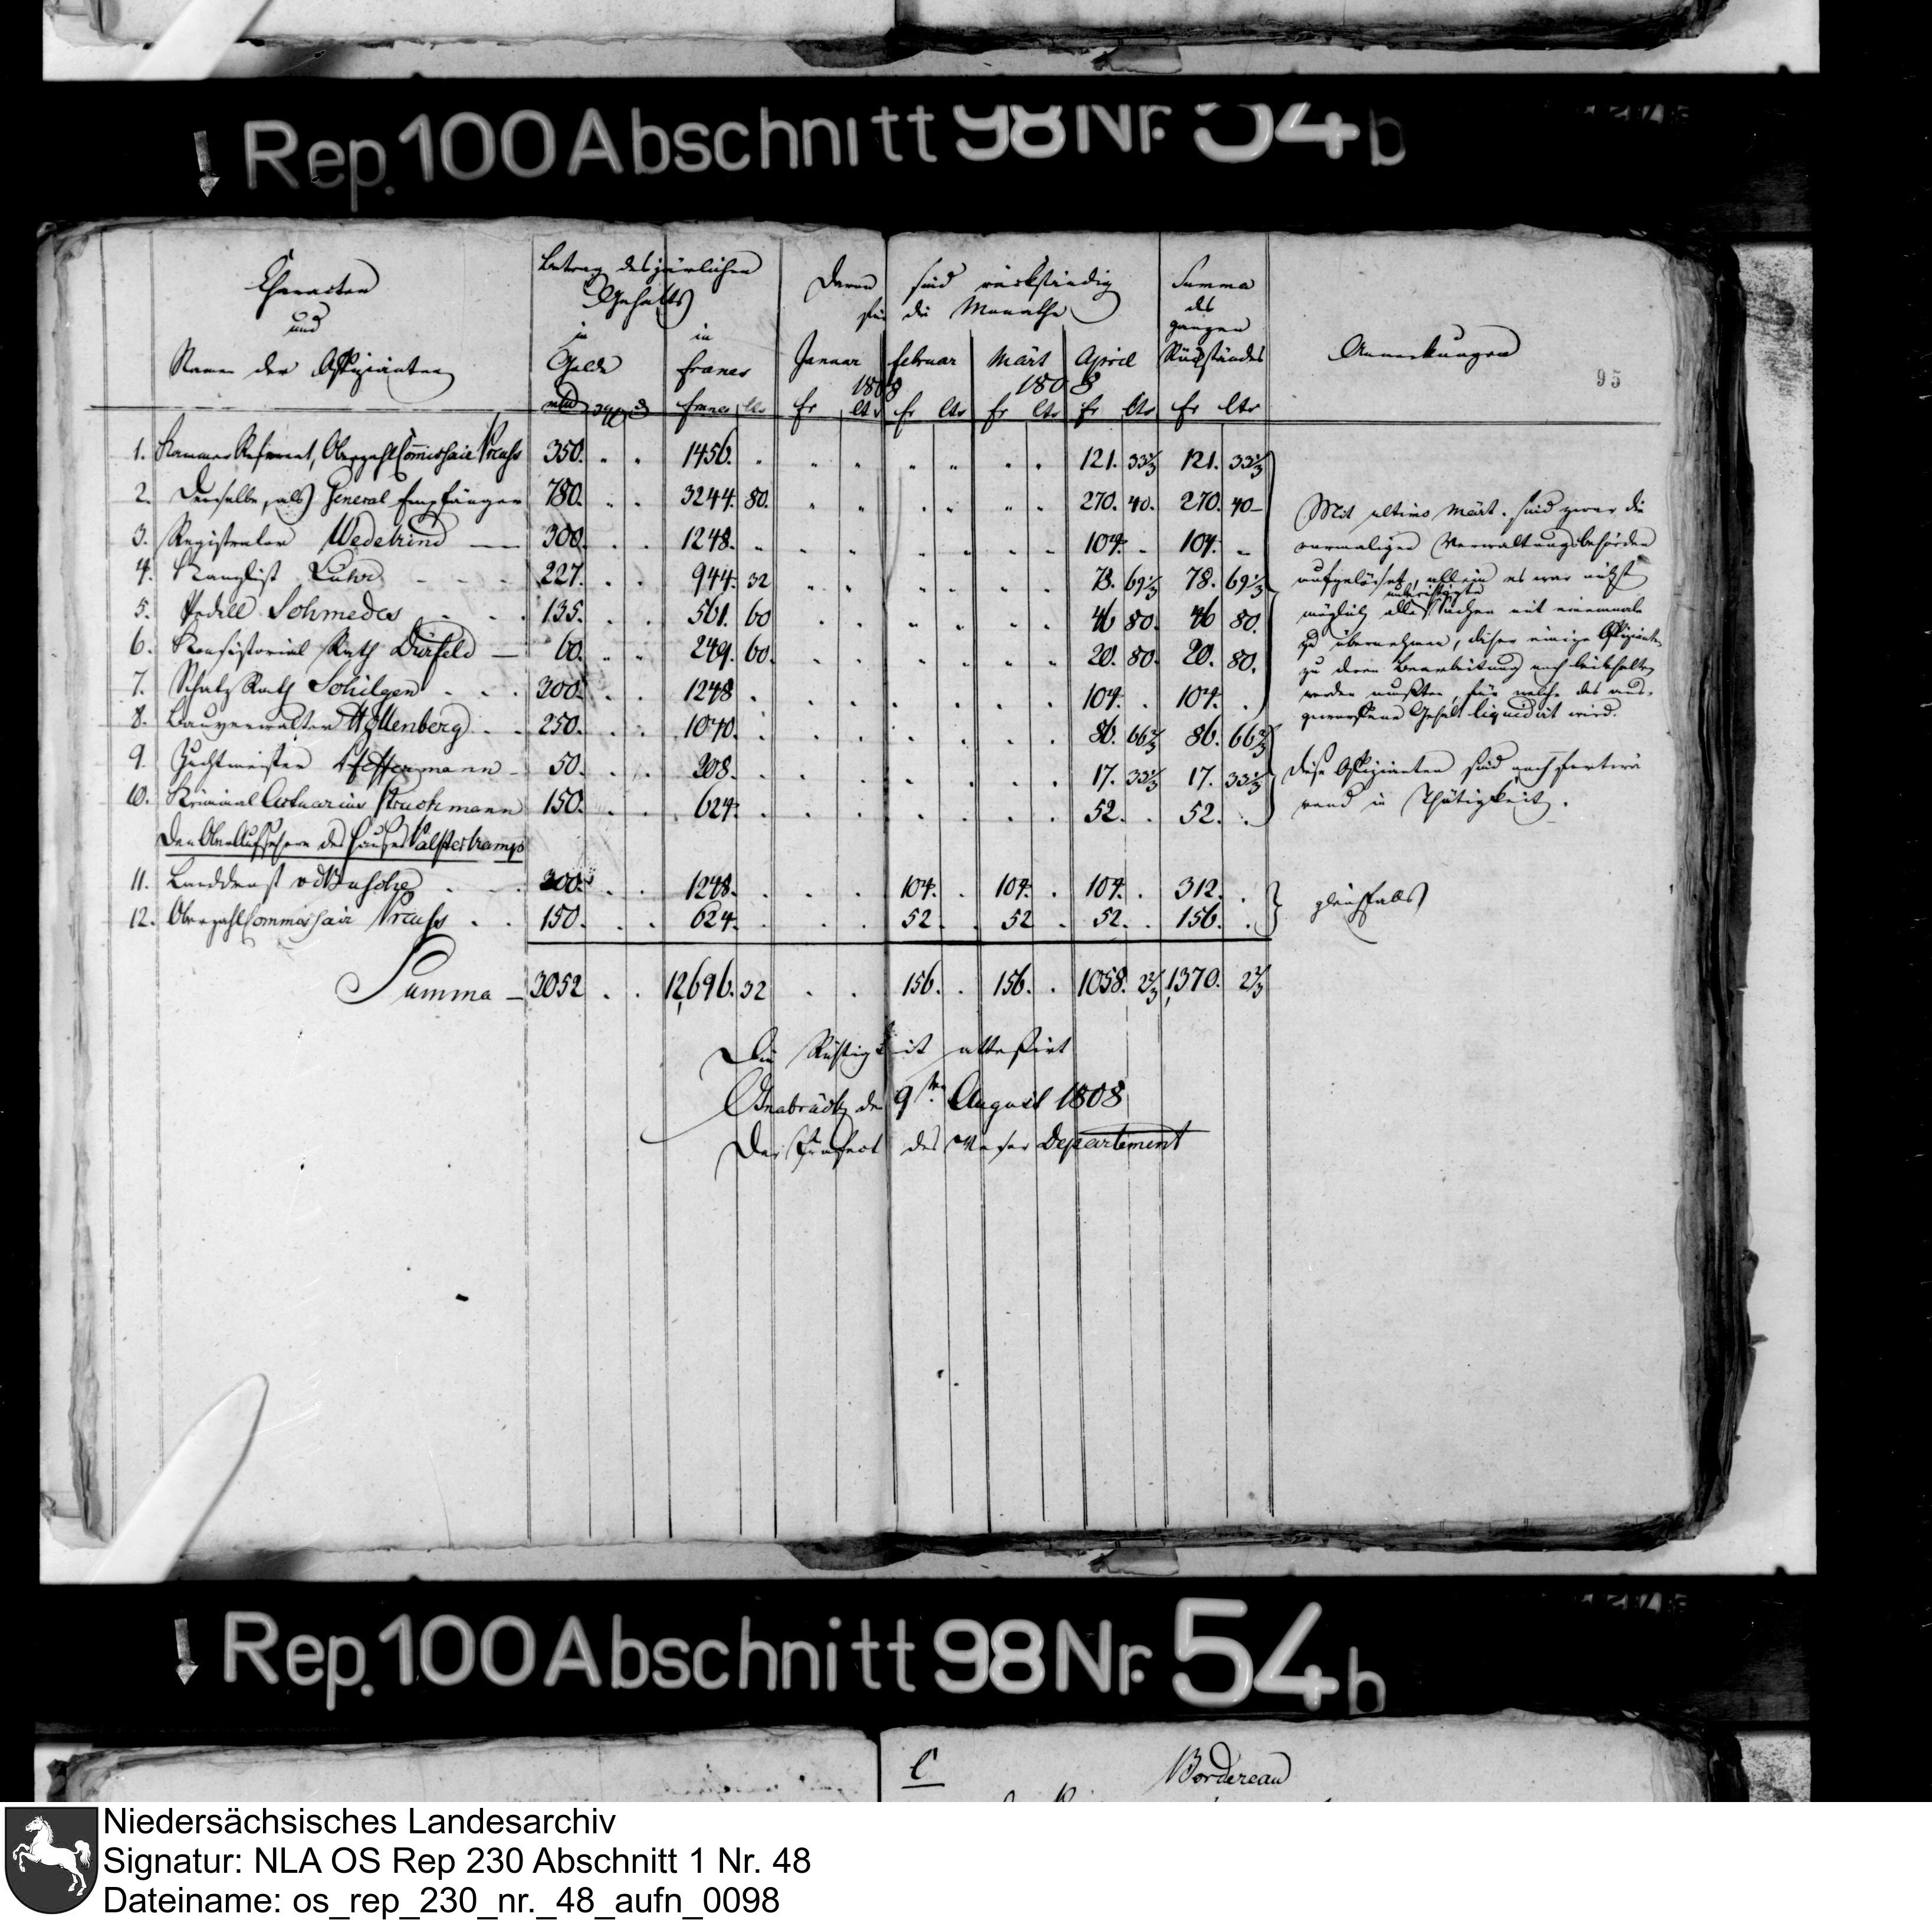 Rep. 100 Abschnitt 98 Nr. 54 b
Character
und
Namen der Offizianten
Betrag des jährlichen
Gehalts
in
Golde
in
Francs
Davon sind rückständig
für die Monathe
Januar Februar März April
1808 1808
Summa
des
ganzen
Rückstandes
Anmerkungen
95
francs fr cts fr cts fr cts fr cts
1. Kammer Referent, Oberzahl Commissair Preuss 350. 1456. 121. 33⅓ 121. 33⅓
2. Derselbe, als General Empfänger 780. 3244. 80. 270. 40. 270. 40
3. Registrator Wedekind 300. 1248. 104. 104.
4. Kanzlist Luhr 227. 944. 32 78. 69⅓ 78. 69⅓
5. Pedell Schmedes 135. 561. 60 46 80. 46 80.
6. Konsistorial Rath Dürfeld 60. 249. 60. 20. 80. 20. 80.
7. Schatz Rath Schilgen 300. 1248 104. 104.
8. Bauverwalter Wollenberg 250. 1040. 86. 66⅔ 86. 66⅔
9. Zuchtmeister 50. 208. 17. 33⅓ 17. 33⅓
10. Kriminal Actuarius Struckmann 150. 624. 52. 52.
Mit ultimo März. sind zwar die
vormaligen Verwaltungsbehörden
aufgelöset, allein es war nicht
möglich alle Sachen mit einemmale
zu übernehmen, daher einige Offizianten
zu deren Bearbeitung noch beibehalten
werden mußten, für welche das aus-
geworfene Gehalt liquidirt wird.
Diese Offizianten sind noch fortwä
rend in Thätigkeit.
Den Oberaufsehern des Hauses
11. Landdrost v d Bussche 300. 1248. 104. 104. 104. 312.
12. Oberzahl Commissair Preuss 150. 624. 52. 52 52. 156.
gleichfalls
Summa 3052 12,696. 32 156. 156. 1058. 2⅔ 1,370. 2⅔
Die Richtigkeit attestirt
Osnabrück den 9ten August 1808
Der Präfect des Weser Departement
Rep. 100 Abschnitt 98 Nr. 54 b
C
Bordereau
Niedersächsisches Landesarchiv
Signatur: NLA OS Rep 230 Abschnitt 1 Nr. 48
Dateiname: os_rep_230_nr._48_aufn_0098